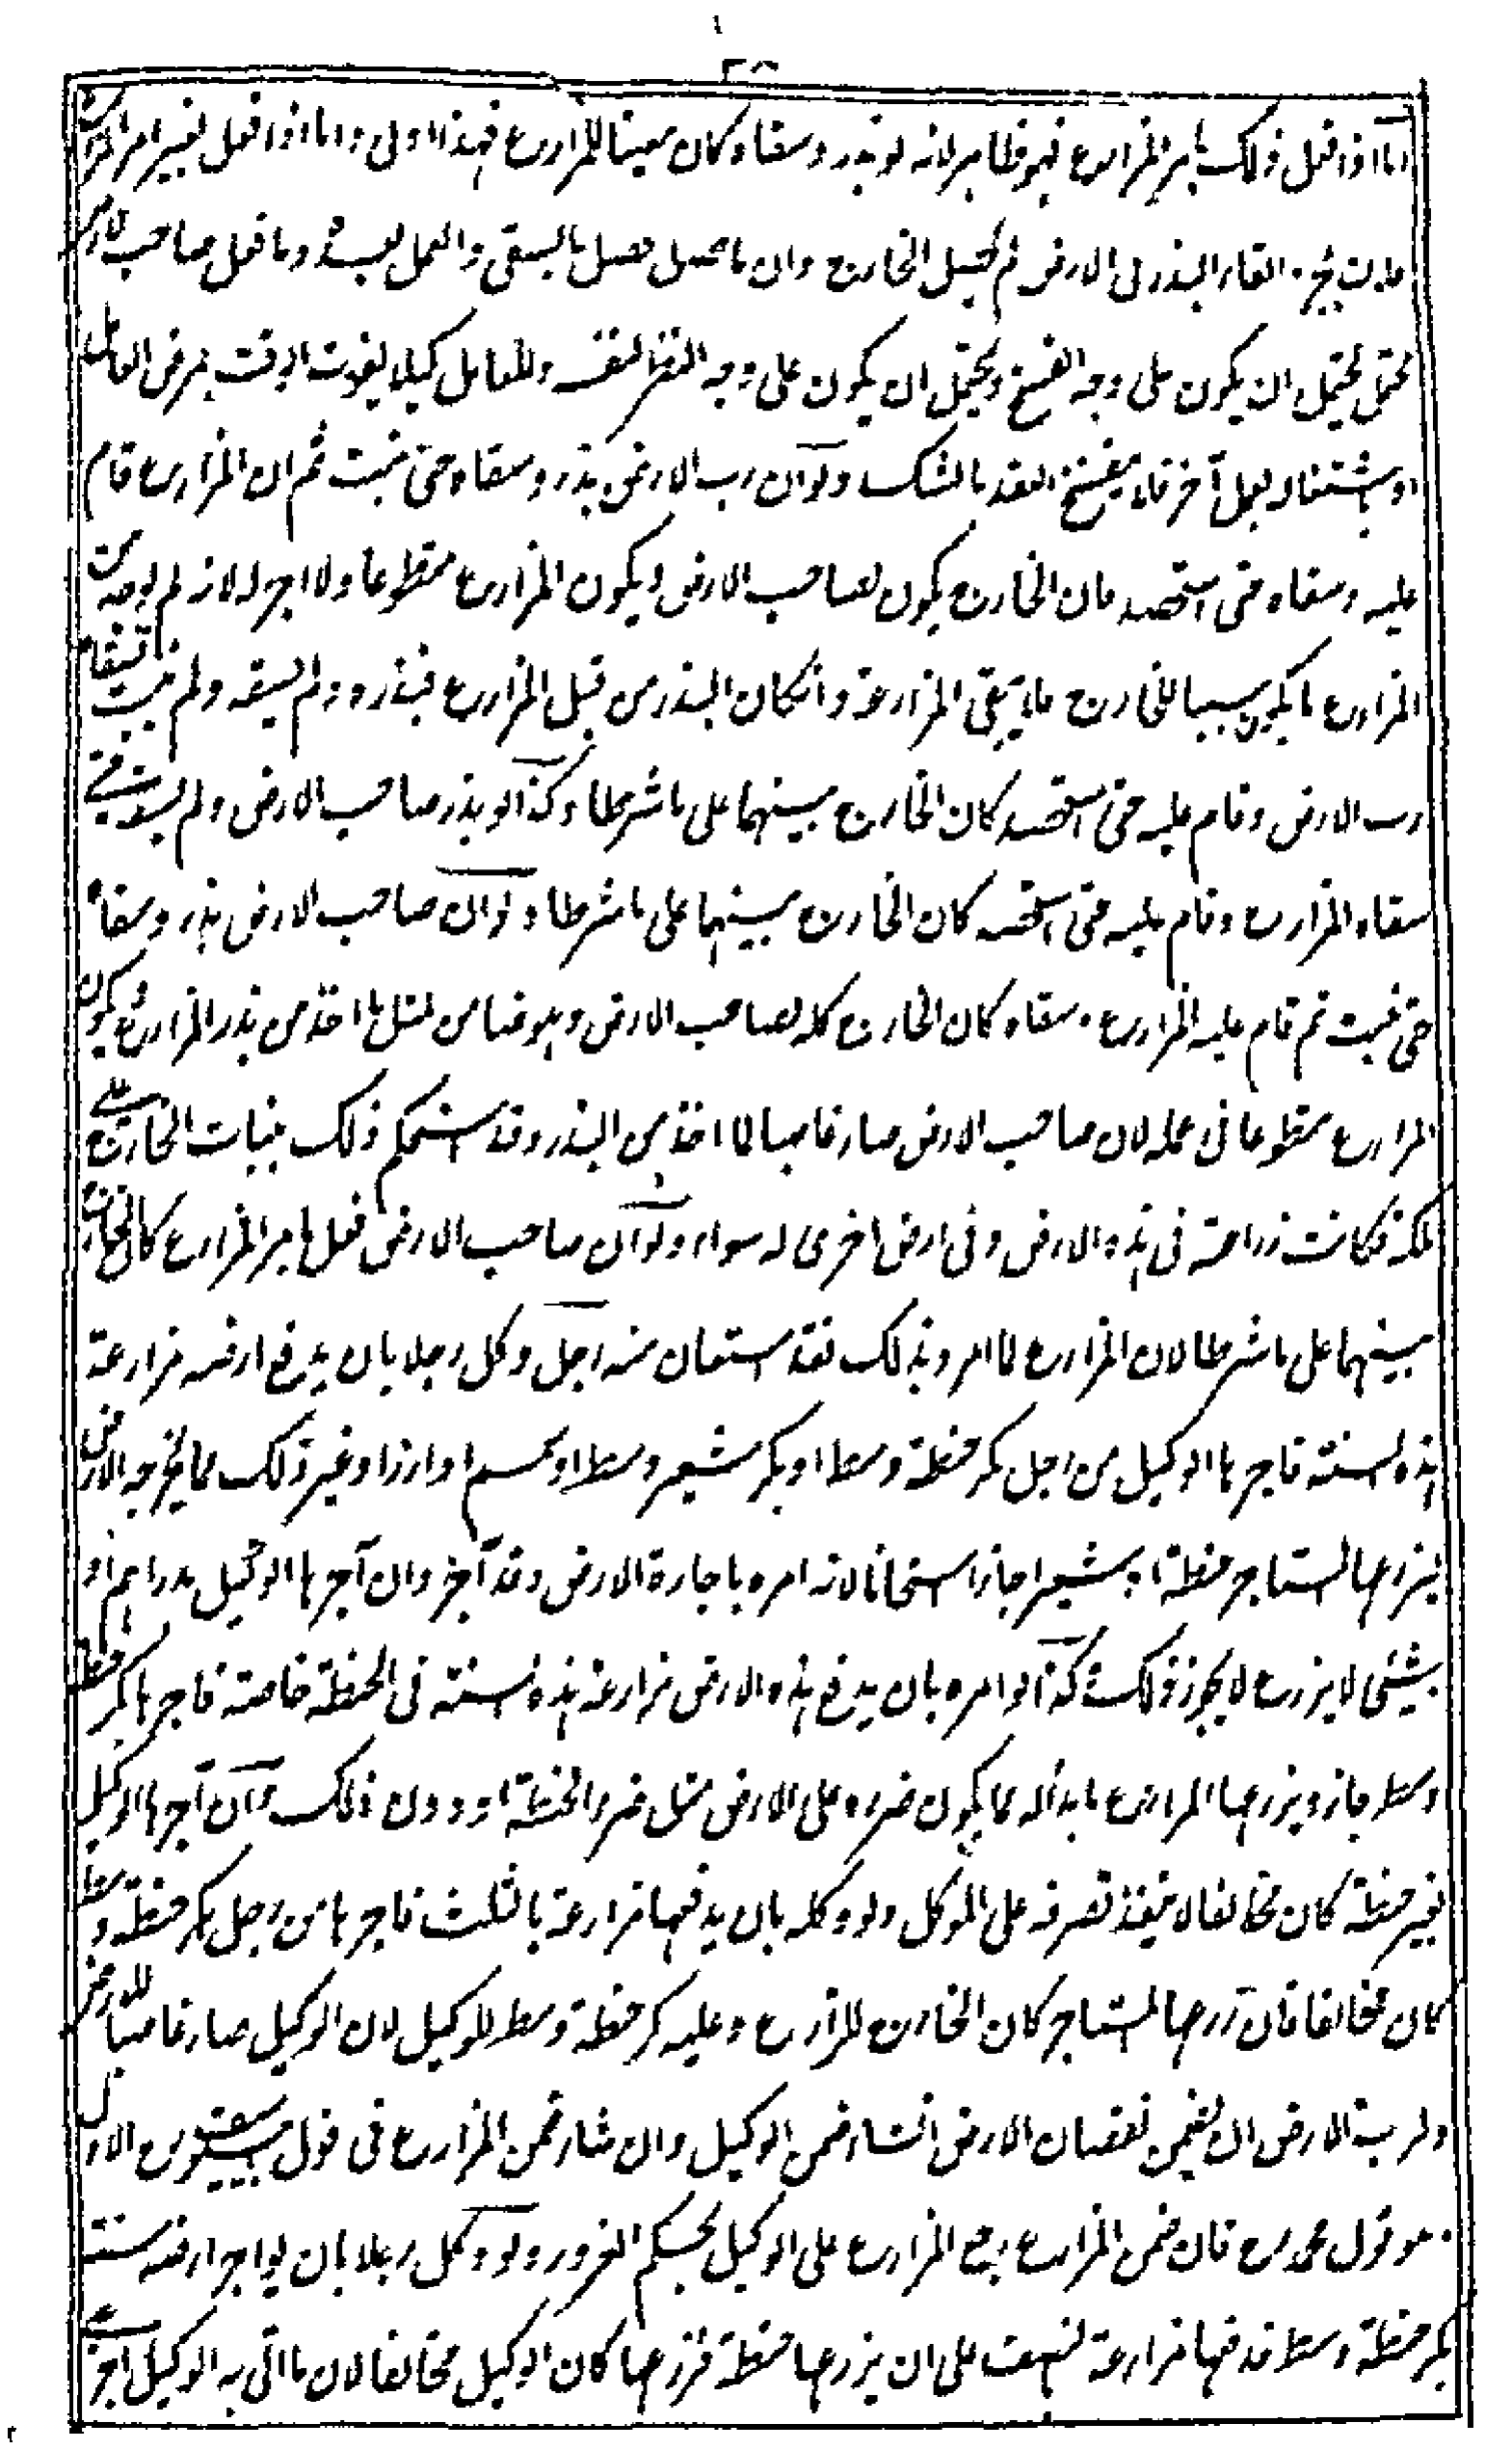 اما اذا فعل ذلك بامر المزارع فهو ظاهر لانه لو بذر وسقاه كان معينا للمزارع فهذا اولى واما اذا فعل بغير امر المزارع
فلان بمجرد القاء البذر فى الارض لم يحصل الخارج وان ما حصل حصل بالسقى والعمل بعده وما فعل صاحب الارض
محتمل يحتمل ان يكون على وجه الفسخ ويحتمل ان يكون على وجه النظر لنفسه وللعامل كيلا يفوت الوقت بمرض العامل
او اشتغاله بعمل آخر فلا ينفسخ العقد بالشك ولو ان رب الارض بذر وسقاه حتى نبت ثم ان المزارع قام
عليه وسقاه حتى استحصد فان الخارج يكون لصاحب الارض ويكون المزارع متطوعا ولا اجر له لانه لم يوجد من
المزارع ما يكون سببا للخارج فلا تبقى المزارعة وانكان البذر من قبل المزارع فبذره ولم يسقه ولم ينبت فسقاه
رب الارض وقام عليه حتى استحصد كان الخارج بينهما على ما شرطا وكذا لو بذر صاحب الارض ولم يسق حتى
سقاه المزارع وقام عليه حتى استحصد كان الخارج بينهما على ما شرطا ولو ان صاحب الارض بذر وسقاه
حتى نبت ثم قام عليه المزارع وسقاه كان الخارج كله لصاحب الارض وهو ضامن لمثل ما اخذ من بذر المزارع ويكون
المزارع متطوعا فى عمله لان صاحب الارض صار غاصبا لما اخذ من البذر وقد استحكم ذلك بنبات الخارج على
ملكه فكانت زراعته فى هذه الارض وفى ارض اخرى له سواء ولو ان صاحب الارض فعل بامر المزارع كان الخارج
بينهما على ما شرطا لان المزارع لما امره بذلك فقد استعان منه رجل وكل رجلا بان يدفع ارضه مزارعة
هذه السنة فاجرها الوكيل من رجل بكر حنطة وسط او بكر شعير وسط او سمسم او ارز او غير ذلك مما يخرجه الارض
ليزرعها المستاجر حنطة او شعيرا جاز استحسانا لانه امره باجارة الارض وقد آجر وان آجرها الوكيل بدراهم او
بشئى لا يزرع لا يجوز ذلك وكذا لو امره بان يدفع هذه الارض مزارعة هذه السنة فى الحنطة خاصة فاجرها بكر حنطة
وسط جاز ويزرعها المزارع ما بدا له مما يكون ضرره على الارض مثل ضرر الحنطة او دون ذلك وان آجرها الوكيل
بغير حنطة كان مخالفا لا ينفذ تصرفه على الموكل ولو وكله بان يدفعها مزارعة بالثلث فاجرها من رجل بكر حنطة وسط
كان مخالفا فان زرعها المستاجر كان الخارج للمزارع وعليه كر حنطة وسط للوكيل لان الوكيل صار غاصبا للارض
ولرب الارض ان يضمن نقصان الارض ان شاء ضمن الوكيل وان شاء ضمن المزارع فى قول ابى يوسف رح الاول
وهو قول محمد رح فان ضمن المزارع رجع المزارع على الوكيل بحكم الغرور ولو وكل رجلا بان يواجر ارضه سنة
بكر حنطة وسط فدفعها مزارعة بالنصف على ان يزرعها حنطة فزرعها كان الوكيل مخالفا لان ما اتى به الوكيل اجر